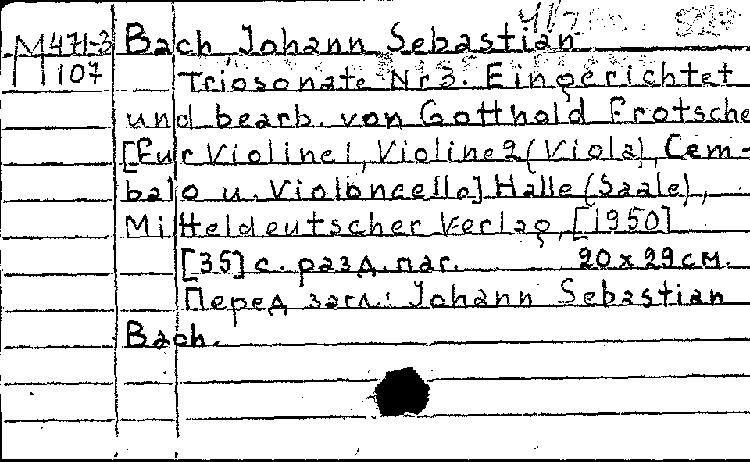 M471-3 Bach Johann Sebastian
M107 Triosonate Nr 3. Eingerichtet
und bearb. von Gotthold Frotsche
[Für Violine 1, Violine 2 (Viola), Cem-
balo u. Violoncello] Halle (Saale),
Mitteldeutscher Verlag, [1950]
[35] с. разд. паг. 20 x 29 см.
Перед загл.: Johann Sebastian
Bach.